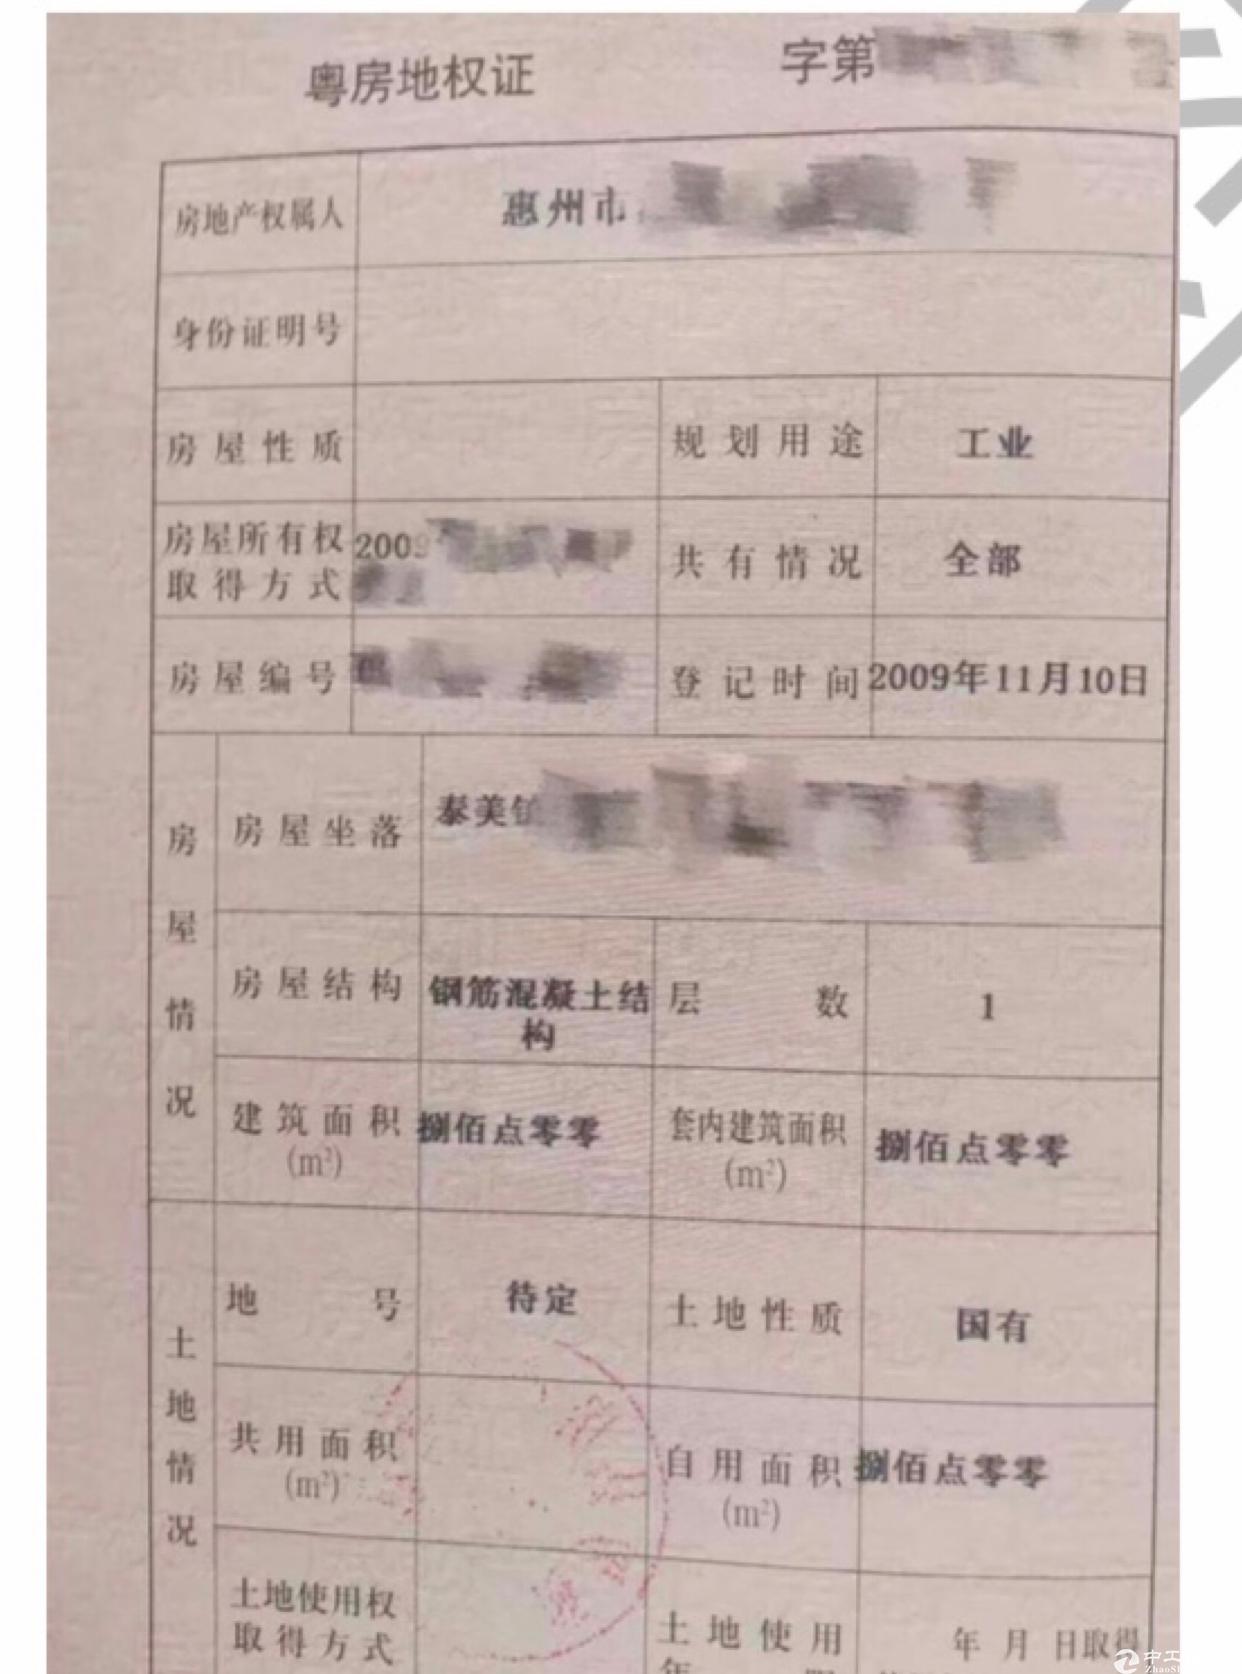 粤房地权证 字第
房地产权属人 惠州市
身份证明号
房屋性质 规划用途 工业
房屋所有权 2009
取得方式 共有情况 全部
房屋编号 登记时间 2009年11月10日
房屋情况
房屋坐落 泰美镇
房屋结构 钢筋混凝土结 层数 1
构
建筑面积 捌佰点零零 套内建筑面积 捌佰点零零
(m²) (m²)
土地情况
地号 待定 土地性质 国有
共用面积 自用面积 捌佰点零零
(m²) (m²)
土地使用权
取得方式 土地使用 年 月 日取得
中工